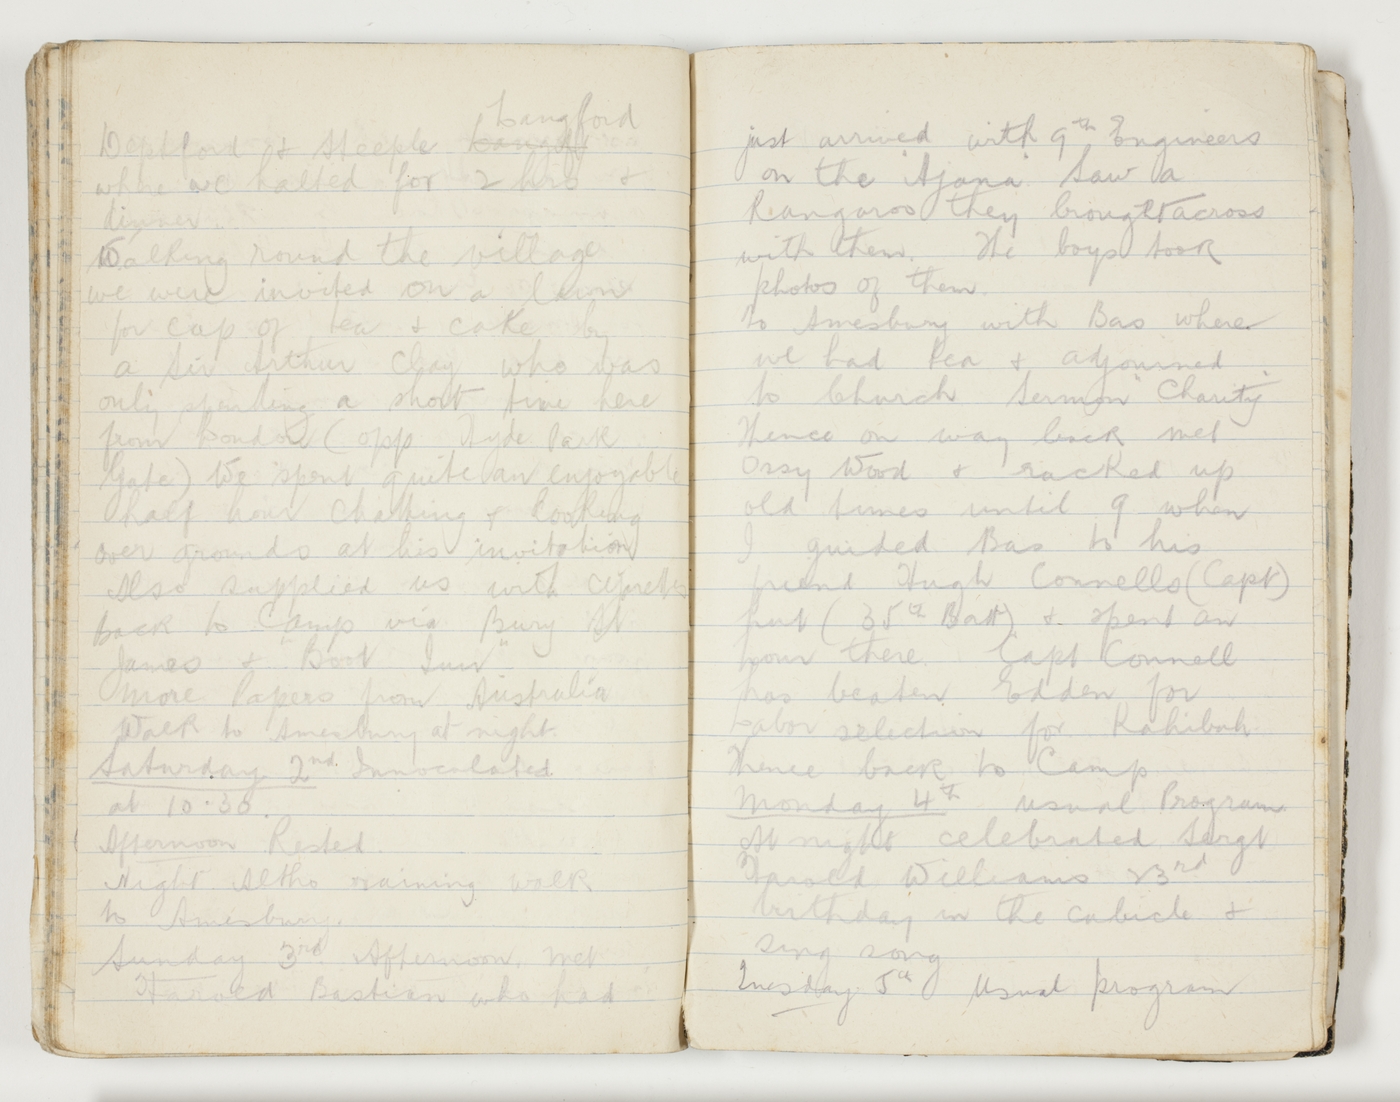 Langford
Deptford & Steeple Langf
where we halted for 2 hrs &
dinner.
Walking round the village
we were invited on a lawn
for cup of tea & cake by
a Sir Arthur Clay who was
only spending a short time here
from London (opp Hyde Park
Gate) We spent quite an enjoyable
half hour chatting & looking
over grounds at his invitation
Also supplied us with
back to Camp via Bury St
James & "Boot Inn"
more Papers from Australia
Walk to Amesbury at night.
Saturday 2nd Innoculated
at 10.30.
Afternoon Rested.
Night Altho raining walk
to Amesbury.
Sunday 3rd Afternoon. met
Harold Bastian who had
just arrived with 9th Engineers
on the "Ajana" Saw a
Kangaroo they brought across
with them. The boys took
photos of them
to Amesbury with Bas where
we had tea & adjourned
to Church Sermon "Charity"
Thence on way back met
Ossy Wood & racked up
old times until 9 when
I guided Bas to his
friend Hugh Connells (Capt)
hut (35th Batt) & spent an
hour there. Capt Connell
has beaten Edden for
Labor selection for Kahibah
Thence back to Camp
Monday 4th usual Program
At night celebrated Sergt
Harold Williams 23rd
birthday in the cubicle &
sing song
Tuesday 5th Usual program